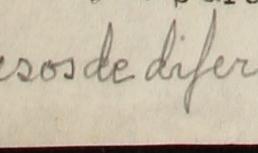 esos de difer